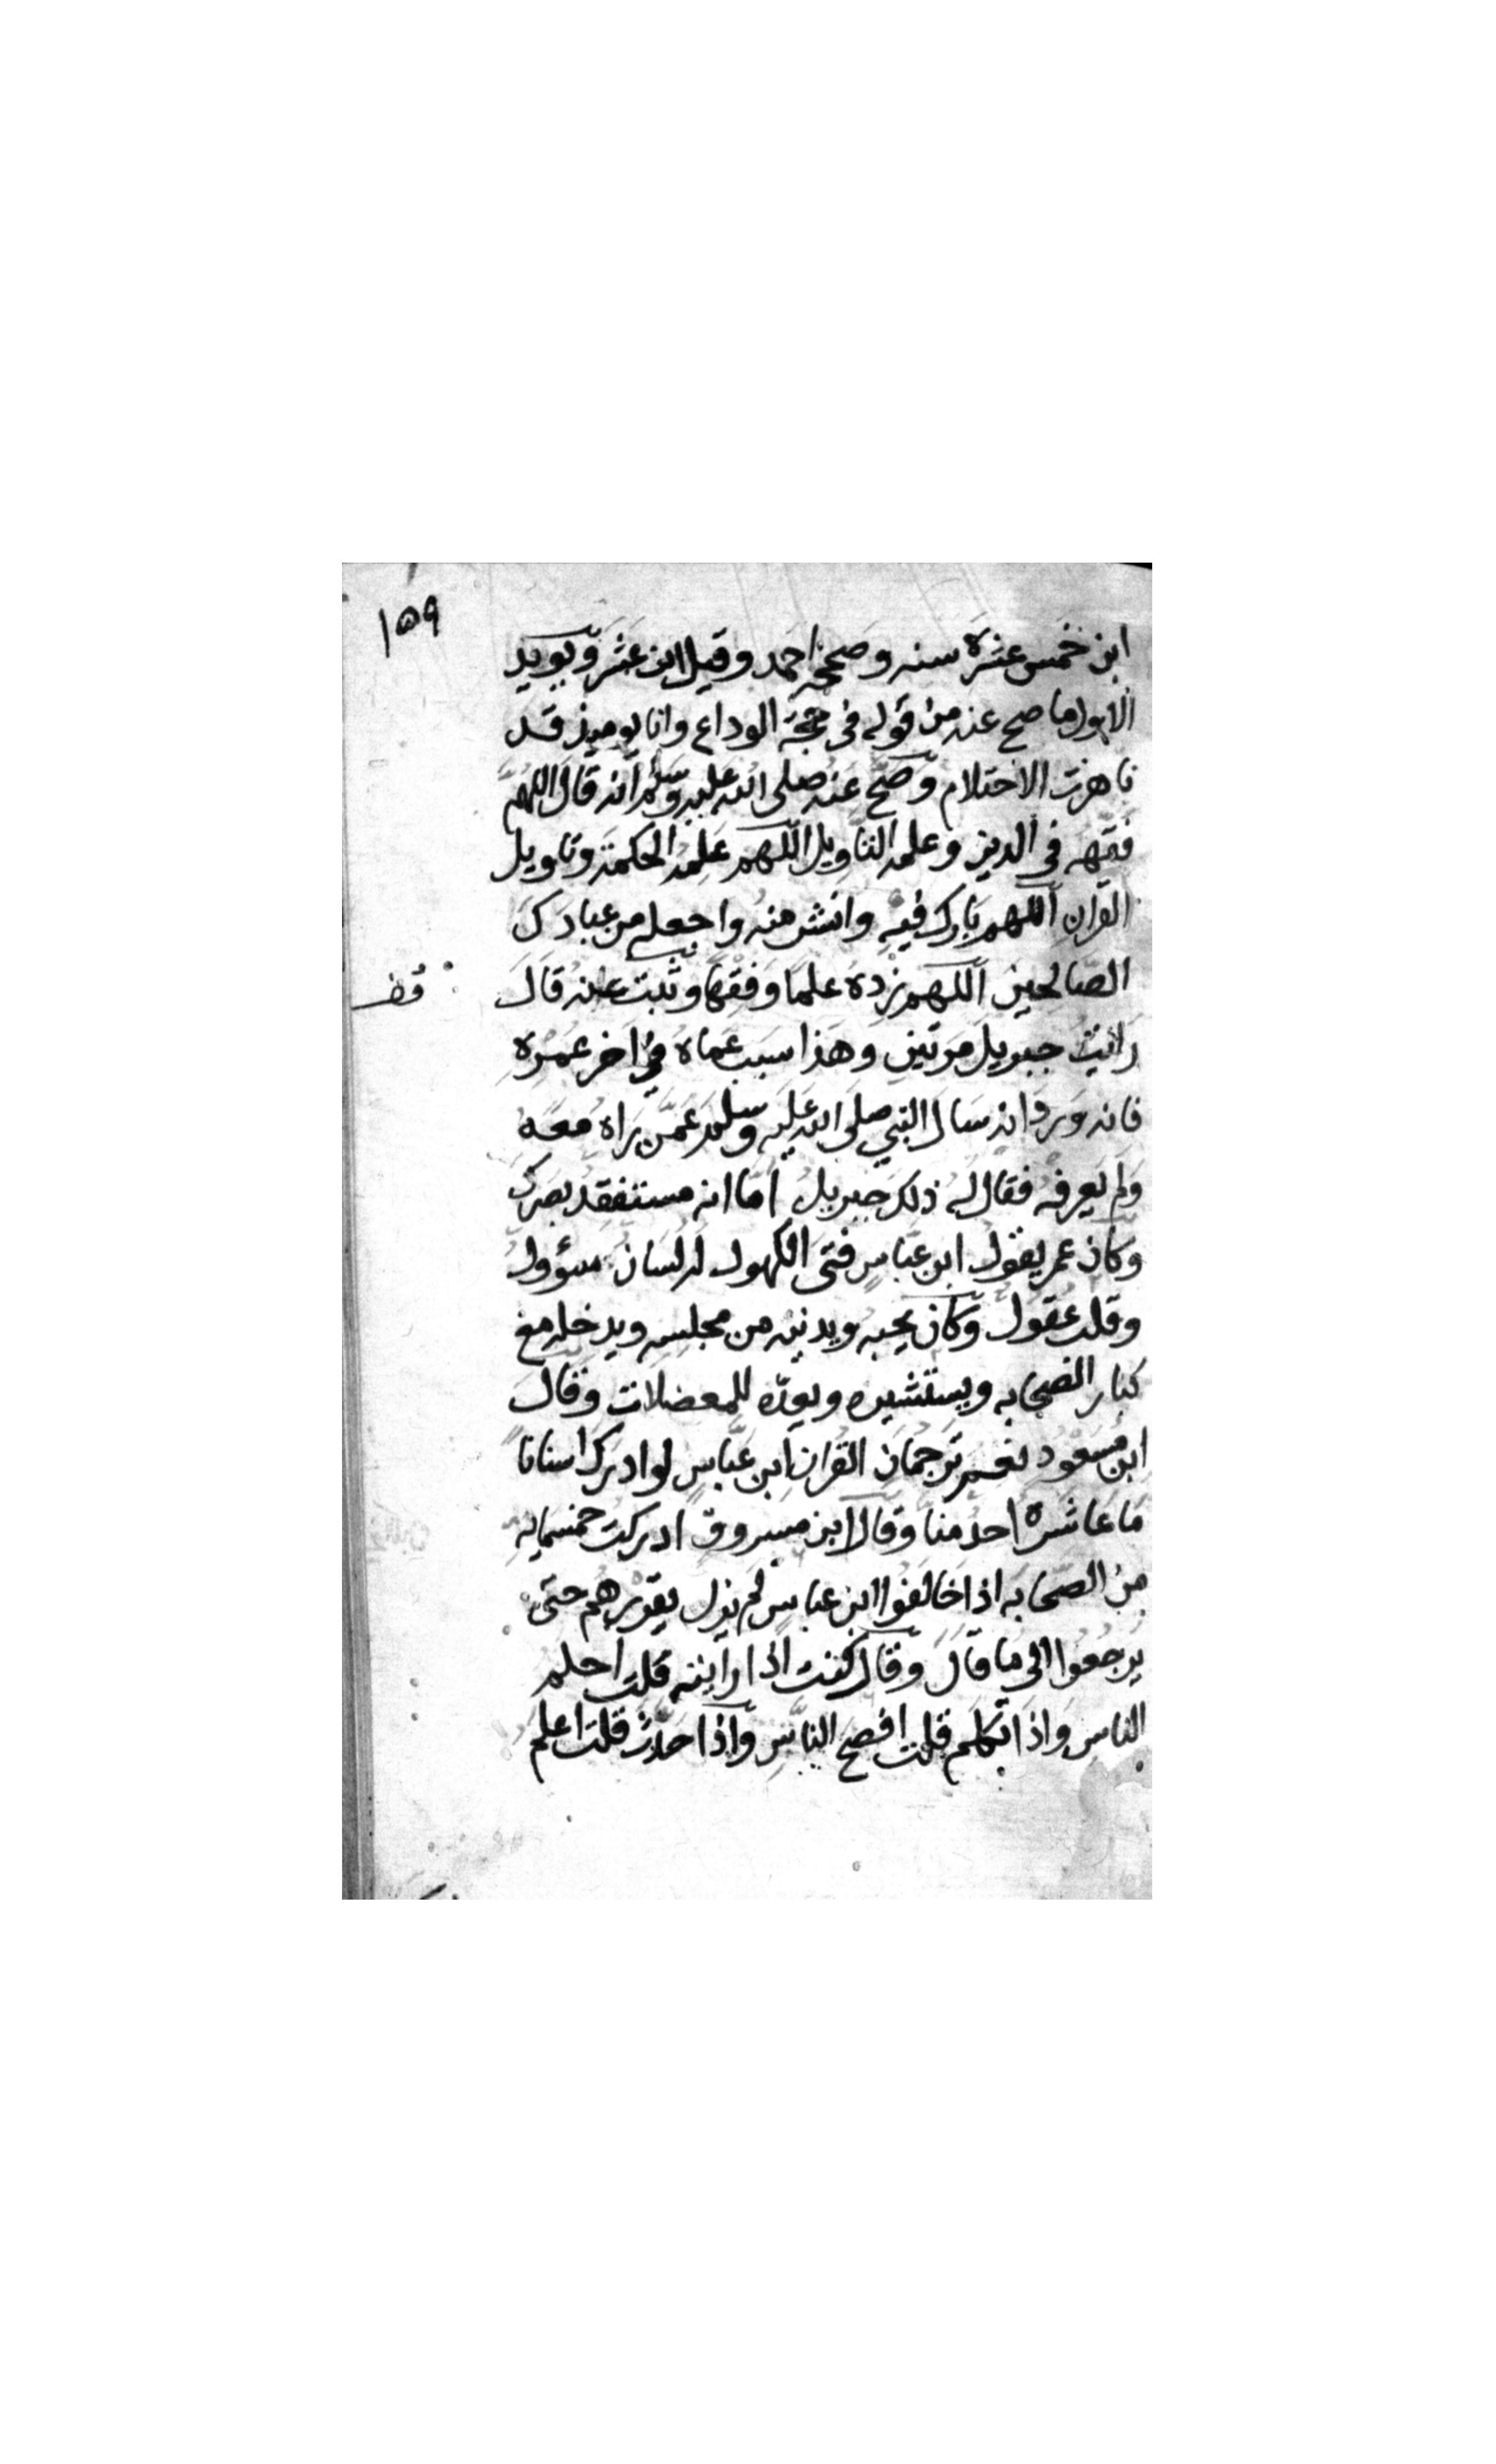 ١٥٩
ابن خمس عشرة سنه وصححه احمد وقيل ابن عشر ويويد
الاول ما صح عنه من قوله في حجة الوداع وانا يوميذ قد
ناهزت الاحتلام وصح عنه صلى الله عليه وسلم انه قال اللهم
فقهه في الدين وعلمه التاويل اللهم علمه الحكمة وتاويل
القران اللهم بارك فيه وانشر منه واجعله من عبادك
الصالحين اللهم زده علما وفقها وثبت عنه قال
رائيت جبريل مرتين وهذا سبب عماه في اخر عمره
فانه ورد انه سال النبي صلى الله عليه وسلم عمن راه معه
ولم يعرفه فقال له ذلك جبريل اما انه ستفقد بصرك
وكان عمر يقول ابن عباس فتى الكهول له لسان سؤول
وقلب عقول وكان يحبه ويدنيه من مجلسه ويدخله مع
كبار الصحابه ويستشيره ويعده للمعضلات وقال
ابن مسعود نعم ترجمان القران ابن عباس لو ادرك اسناننا
ما عاشره احد منا وقال ابن مسروق ادركت خمسمايه
من الصحابه اذا خالفوا ابن عباس لم يزل يقررهم حتى
يرجعوا الى ما قال وقال كنت اذا رايته قلت احلم
الناس واذا تكلم قلت افصح الناس واذا حدث قلت اعلم